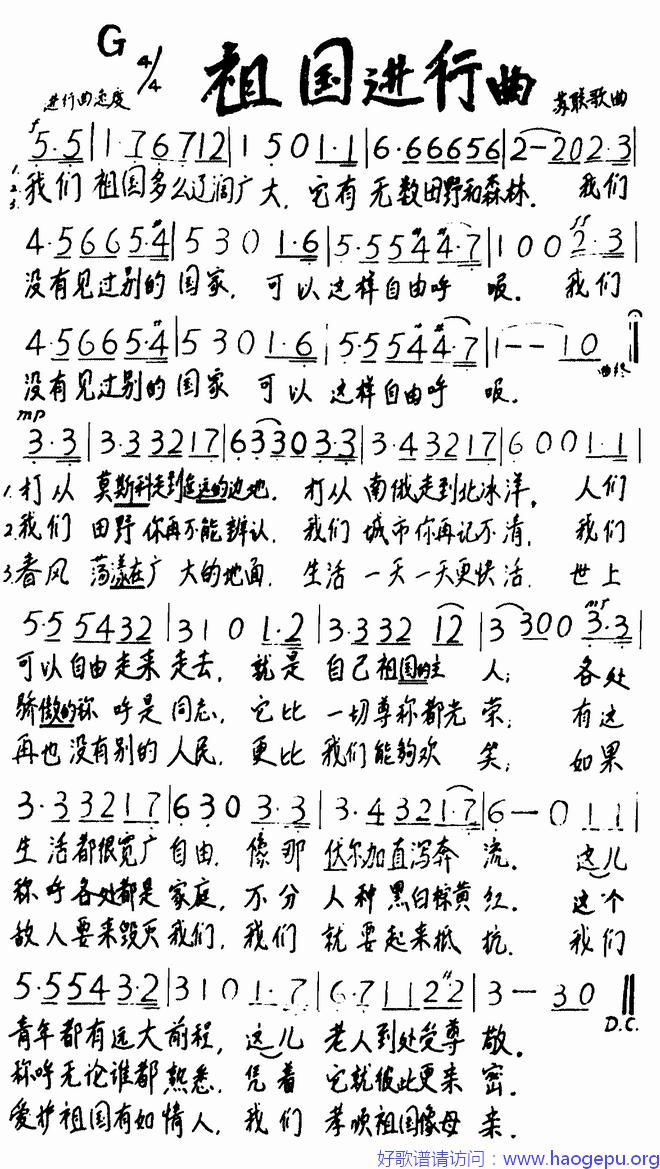 G 4/4 祖国进行曲
进行曲速度 苏联歌曲
f
5·5|1·76712|1501·1|6·66656|2-202·3|
1.
2.
3.
我们 祖国多么辽阔广大，它有 无数田野和森林． 我们
ff
4·5665·#4|5301·6|5·55#4#4·7|1002·3|
没有见过别的 国家， 可以 这样自由呼 吸． 我们
4·5665·#4|5301·6|5·55#4#4·7|1--10
曲终
没有见过别的 国家 可以 这样自由呼 吸．
mp
3·3|3·33217|633033·3|3·43217|6001·1|
1.打从 莫斯科走到遥远的边地， 打从 南俄走到北冰洋， 人们
2.我们 田野你再不能辨认， 我们 城市你再记不清， 我们
3.春风 荡漾在广大的地面． 生活 一天一天更快活． 世上
mf
5·55432|3101·2|3·33212|33003·3|
可以自由走来走去， 就是 自己祖国的主 人； 各处
骄傲的称呼是同志， 它比 一切尊称都光 荣； 有这
再也没有别的人民， 更比 我们能够欢 笑； 如果
3·33217|6303·3|3·4321·7|6-011|
生活都很宽广自由． 像那 伏尔加直泻奔 流． 这儿
称呼各处都是家庭， 不分 人种黑白棕黄 红． 这个
敌人要来毁灭我们， 我们 就要起来抵 抗． 我们
5·5543·2|3101·7|6·71122|3-30
D.C.
青年都有远大前程， 这儿 老人到处受尊 敬．
称呼无论谁都熟悉． 凭着 它就彼此更亲 密．
爱护祖国有如情人， 我们 孝顺祖国像母 亲．
好歌谱请访问：www.haogepu.org